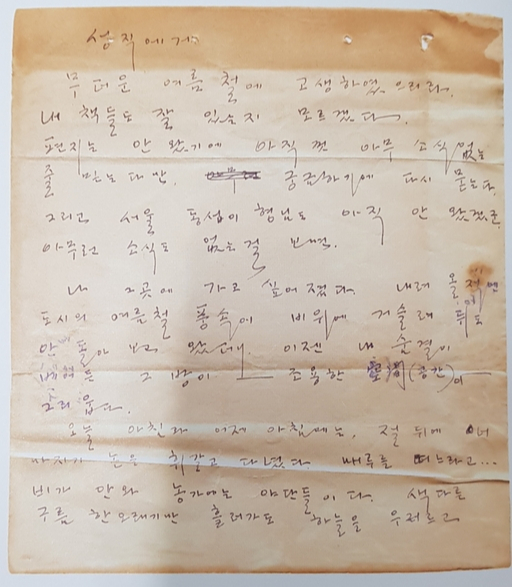 성직에게
무더운 여름철에 고생하였으리라.
내 책들도 잘 있는지 모르겠다.
편지는 안 왔기에 아직껏 아무 소식 없는
줄 믿는다만, 궁금하기에 다시 묻는다.
그리고 서울 동성이 형님도 아직 안 왔겠군
아무런 소식도 없는 걸 보면.
나 그곳에 가고 싶어졌다. 내려올 적엔
도시의 여름철 풍속에 비위에 거슬려 뒤도
안 돌아보고 왔는데, 이젠 내 숨결이
배어든 그 방이 조용한 空間(공간)이
그리웁다.
오늘 아침과 어제 아침에는, 절 뒤에 너
마지기 논을 휘갈고 다녔다 떼느라고...
비가 안 와 농가에는 야단들이다. 색다른
구름 한 오래기만 흘러가도 하늘을 우러르고